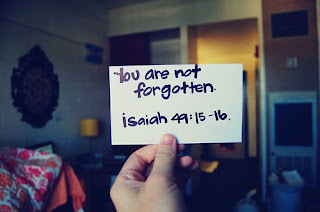 You are not
forgotten.
isaiah 49:15-16.